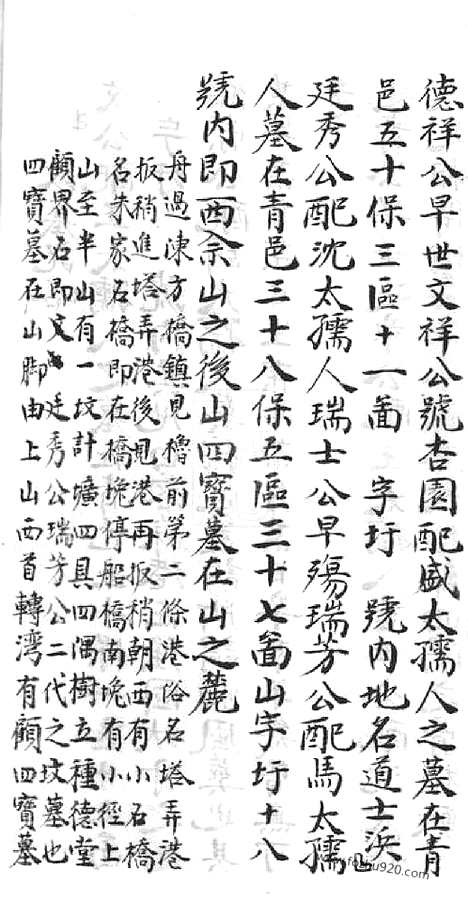 德祥公早世文祥公號杏園配盛太孺人之墓在青
邑五十保三區十一啚 字圩 號內地名道士浜
廷秀公配沈太孺人瑞士公早殤瑞芳公配馬太孺
人墓在青邑三十八保五區三十七啚山字圩十八
號內即西佘山之後山四寶墓在山之麓
舟過陳方橋鎮見櫓前第二條港俗名塔弄港
扳稍進塔弄港後見港再扳稍朝西有小石橋
名朱家石橋即在橋堍停船橋南堍有小徑上
山至半山有一坟計壙四具四隅樹立種德堂
顧界石即文 廷秀公瑞芳公二代之坟墓也
四寶墓在山脚由上山西首轉湾有顧四寶墓